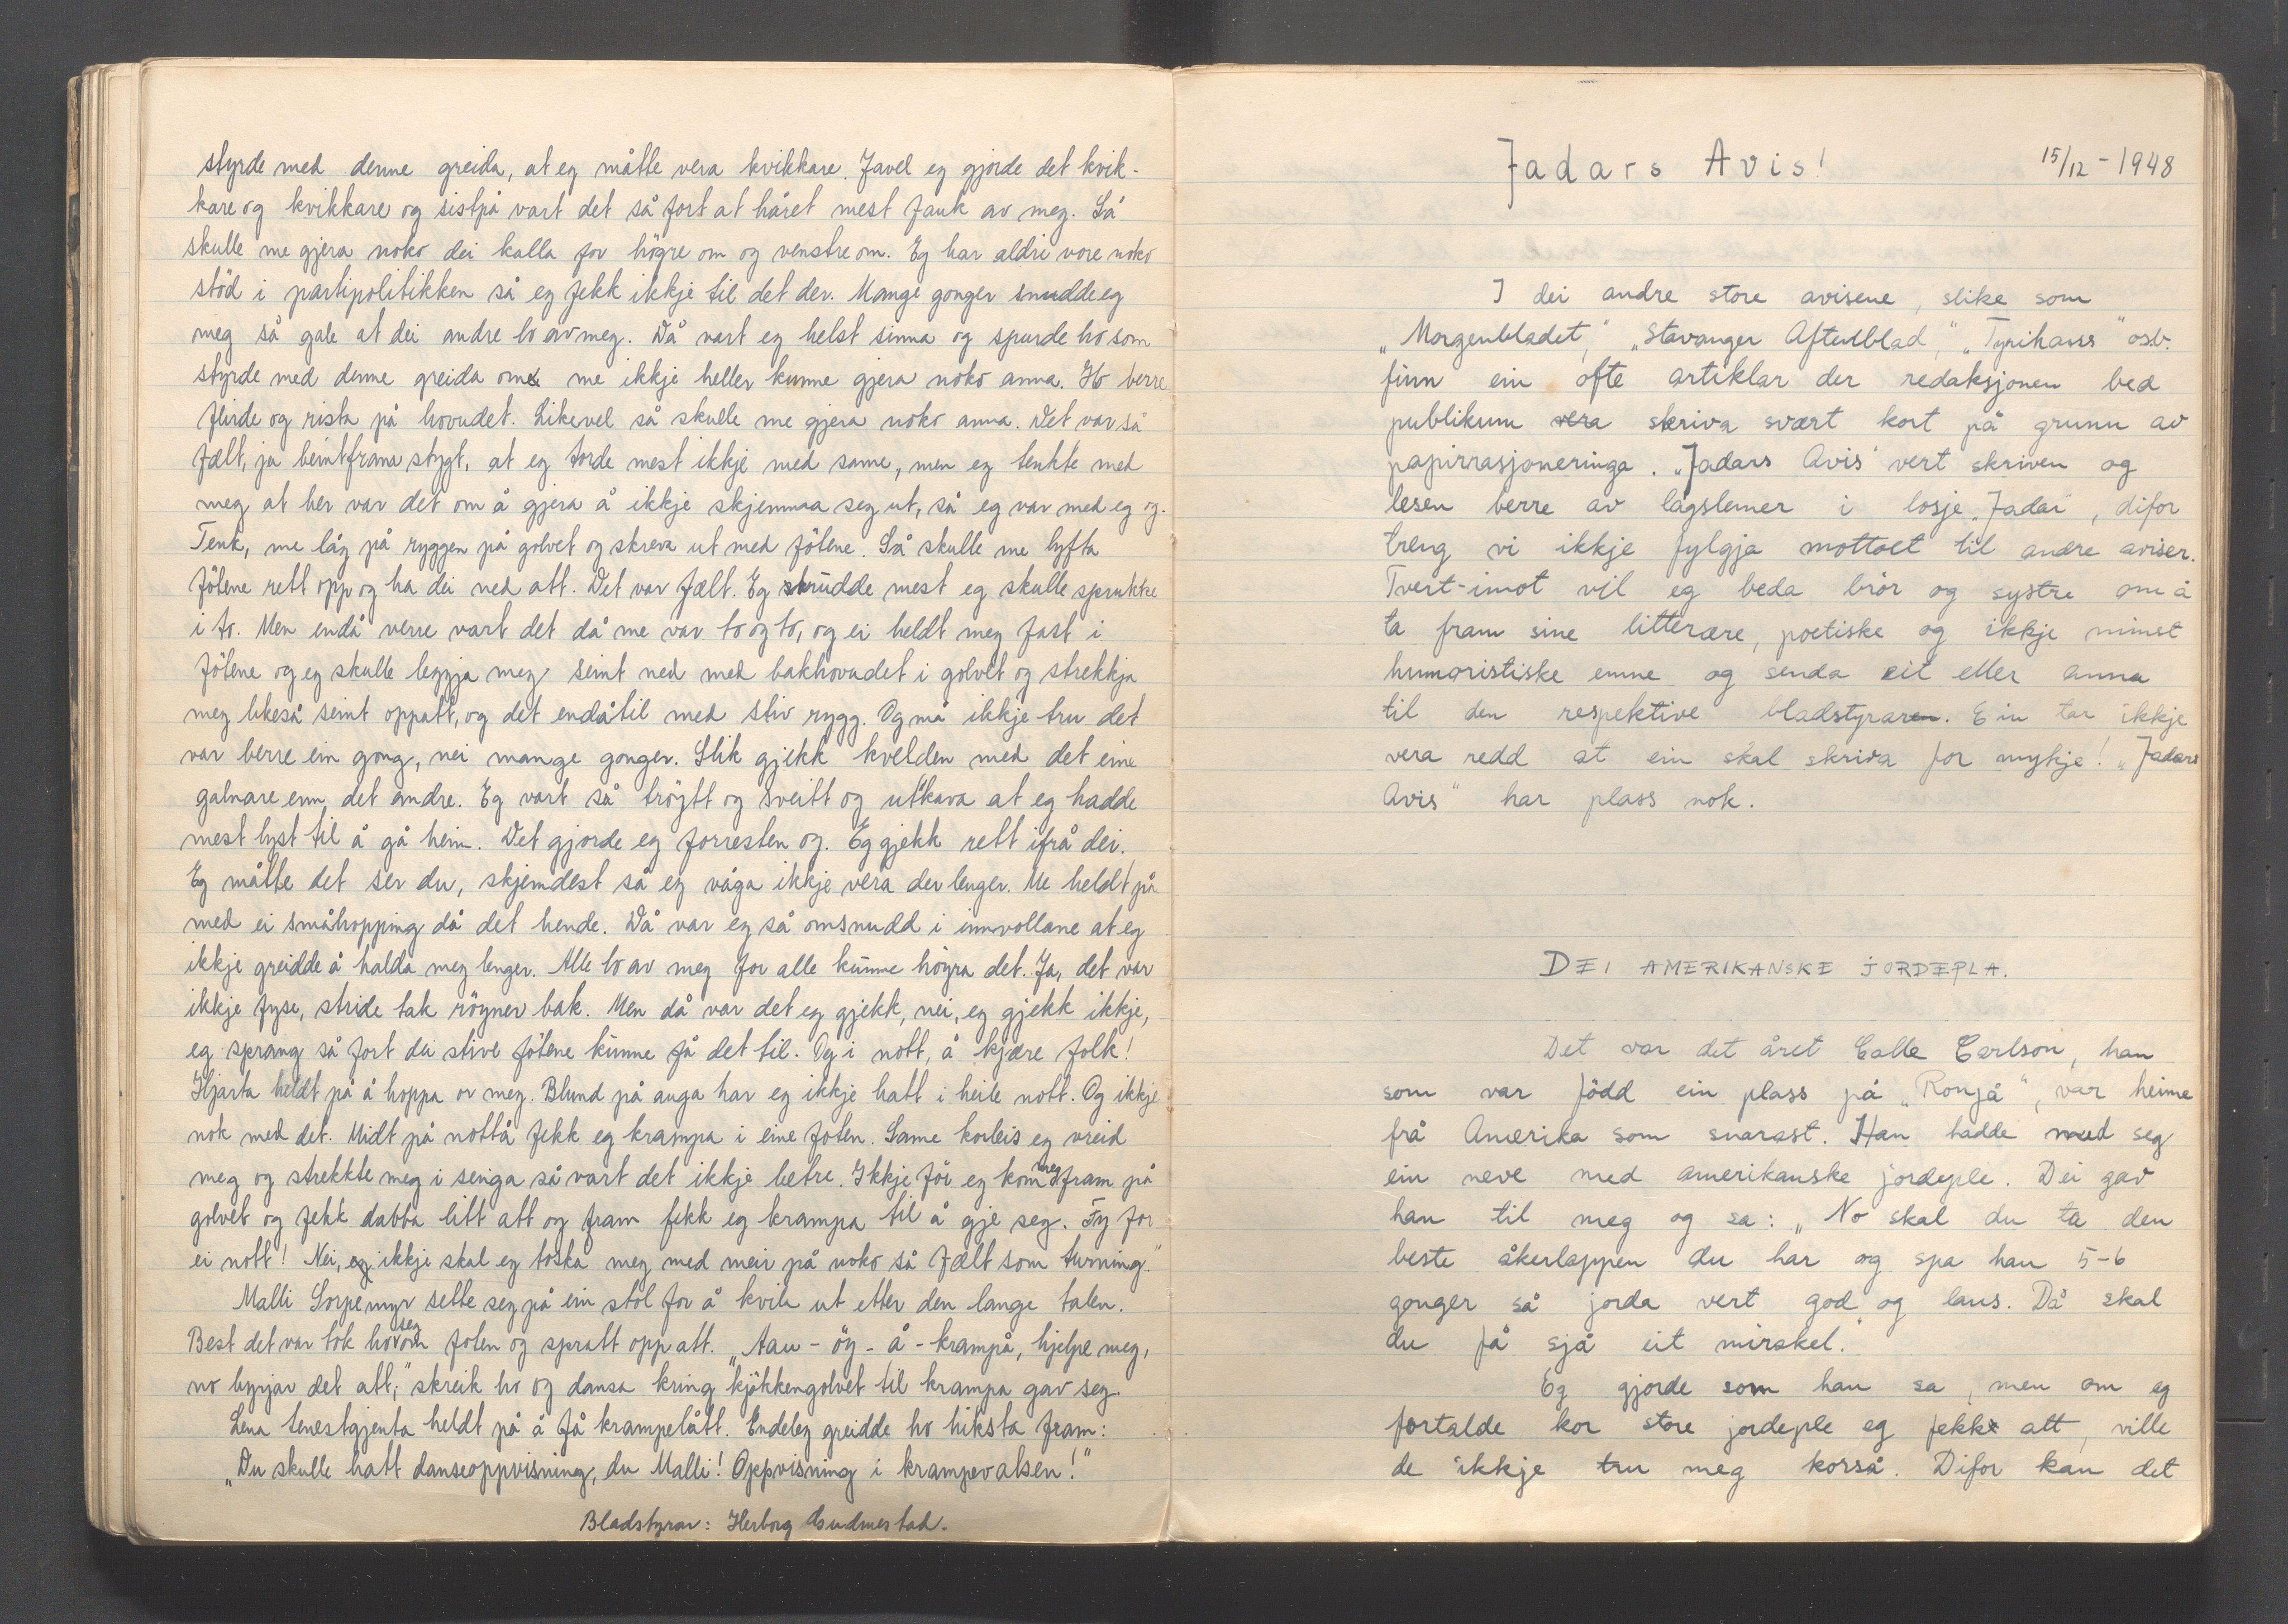 styrde med denne greida, at eg måtte vera kvikkare. Javel eg gjorde det kvik-
kare og kvikkare og sistpå vart det så fort at håret mest fauk av meg. Så
skulle me gjera noko dei kalla for högre om og venstre om. Eg har aldri vore noko
stöd i partipolitikken så eg fekk ikkje til det der. Mange gonger snudde eg
meg så gale at dei andre lo av meg. Då vart eg helst sinna og spurde ho som
styrde med denne greida om me ikkje heller kunne gjera noko anna. Ho berre
flirde og rista på hovudet. Likevel så skulle me gjera noko anna. Det var så
fælt, ja beintframa stygt, at eg torde mest ikkje med same, men eg tenkte med
meg at her var det om å gjera å ikkje skjemmaa seg ut, så eg var med eg og.
Tenk, me låg på ryggen på golvet og skreva ut med fötene. Så skulle me lyfta
fötene rett opp og ha dei ned att. Det var fælt. Eg trudde mest eg skulle sprukke
i to. Men endå verre vart det då me var to og to, og ei heldt meg fast i
fötene og eg skulle leggja meg seint ned med bakhovudet i golvet og strekkja
meg likeså seint oppatt, og det endåtil med stiv rygg. Og må ikkje tru det
var berre ein gong, nei mange gonger. Slik gjekk kvelden med det eine
galnare enn det andre. Eg vart så tröytt og sveitt og utkava at eg hadde
mest lyst til å gå heim. Det gjorde eg forresten og. Eg gjekk rett ifrå dei.
Eg måtte det ser du, skjemdest så eg våga ikkje vera der lenger. Me heldt på
med ei småhopping då det hende. Då var eg så omsnudd i innvollane at eg
ikkje greidde å halda meg lenger. Alle lo av meg for alle kunne höyra det. Ja, det var
ikkje fyse, stride tak röyner bak. Men då var det eg gjekk, nei, eg gjekk ikkje,
eg sprang så fort dei stive fötene kunne få det til. Og i nott, å kjære folk!
Hjarta heldt på å hoppa or meg. Blund på auga har eg ikkje hatt i heile nott. Og ikkje
nok med det. Midt på nottå fekk eg krampa i eine foten. Same korleis eg vreid
meg og strekkte meg i senga så vart det ikkje betre. Ikkje för eg kom meg fram på
golvet og fekk dabba litt att og fram fekk eg krampa til å gje seg. Fy for
ei nott! Nei, ikkje skal eg toska meg med meir på noko så fælt som turning."
Malli Sorpemyr sette seg på ein stol for å kvile ut etter den lange talen.
Best det var tok ho seg om foten og spratt opp att. „Aau - öy - å - krampå, hjelpe meg,
no byrjar det att," skreik ho og dansa kring kjökkengolvet til krampa gav seg.
Lena tenestgjenta heldt på å få krampelått. Endeleg greidde ho hiksta fram:
„Du skulle hatt danseoppvisning, du Malli! Oppvisning i krampevalsen!"
Bladstyrar: Herborg Gudmestad.
Jadars Avis!
15/12 - 1948
I dei andre store avisene, slike som
„Morgenbladet," „Stavanger Aftenblad," „Tyrihans" osb.
finn ein ofte artiklar der redaksjonen bed
publikum vera skriva svært kort på grunn av
papirrasjoneringa. „Jadars Avis" vert skriven og
lesen berre av lagslemer i losje „Jadar", difor
treng vi ikkje fylgja mottoet til andre aviser.
Tvert-imot vil eg beda brör og systre om å
ta fram sine litterære, poetiske og ikkje minst
humoristiske emne og senda eit eller anna
til den respektive bladstyraren. Ein tar ikkje
vera redd at ein skal skriva for mykje! „Jadars
Avis" har plass nok.
DEI AMERIKANSKE JORDEPLA.
Det var det året Calle Carlson, han
som var född ein plass på „Ronjå", var heime
frå Amerika som snarast. Han hadde med seg
ein neve med amerikanske jordeple. Dei gav
han til meg og sa: „No skal du ta den
beste åkerlappen du har og spa han 5-6
gonger så jorda vert god og laus. Då skal
du få sjå eit mirakel."
Eg gjorde som han sa, men om eg
fortalde kor store jordeple eg fekk att, ville
de ikkje tru meg korså. Difor kan det